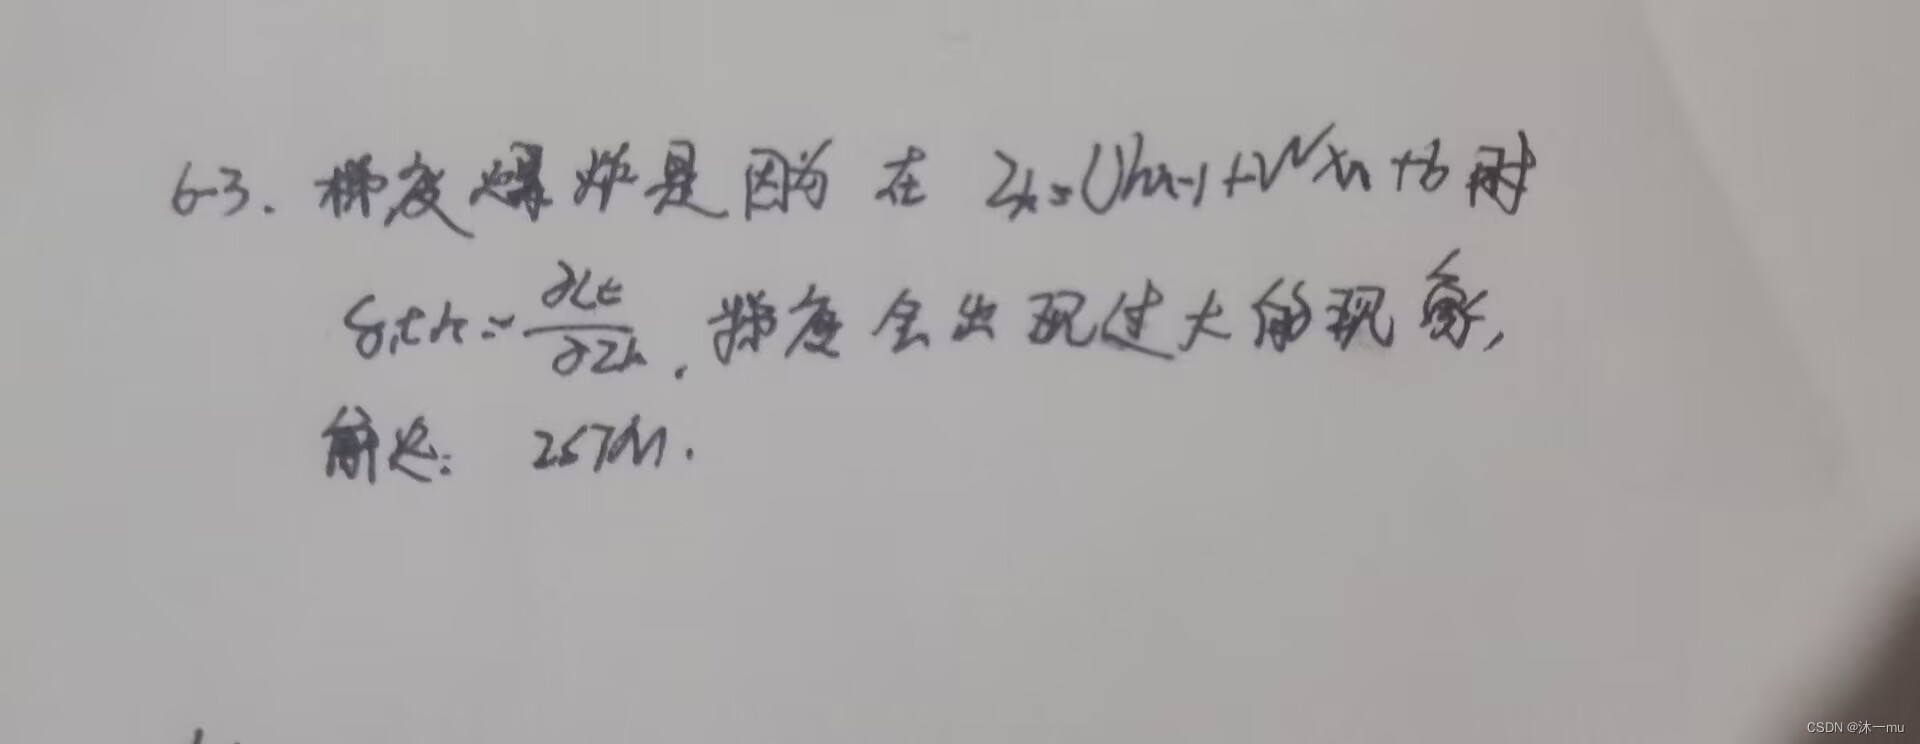 6-3. 梯度爆炸是因为 在 Zk=Uhk-1+WXk+b 时
δt,k=∂Lt/∂Zk. 梯度会出现过大的现象,
解决: LSTM.
CSDN @沐一mu